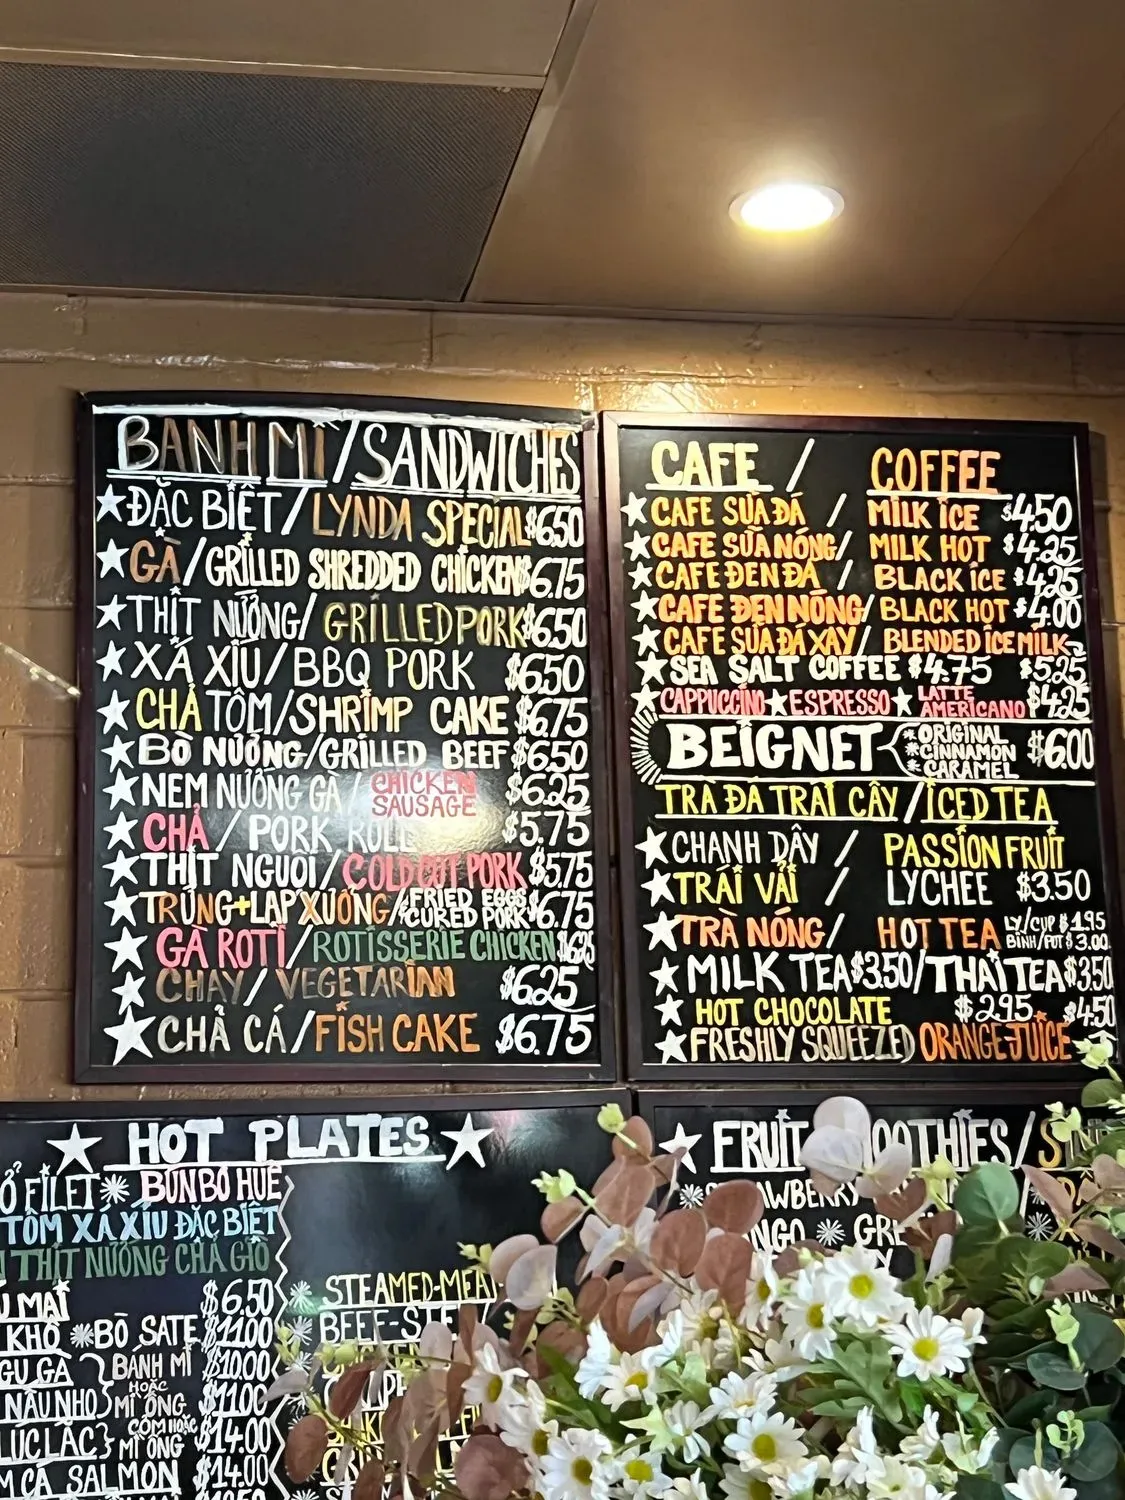 BANH MÌ / SANDWICHES
ĐẶC BIỆT / LYNDA SPECIAL $6.50
GÀ / GRILLED SHREDDED CHICKEN $6.75
THỊT NƯỚNG / GRILLED PORK $6.50
XÁ XÍU / BBQ PORK $6.50
CHẢ TÔM / SHRIMP CAKE $6.75
BÒ NƯỚNG / GRILLED BEEF $6.50
NEM NƯỚNG GÀ / CHICKEN SAUSAGE $6.25
CHẢ / PORK ROLL $5.75
THỊT NGUỘI / COLD CUT PORK $5.75
TRỨNG + LAP XƯỞNG / FRIED EGGS CURED PORK $6.75
GÀ ROTI / ROTISSERIE CHICKEN
CHAY / VEGETARIAN $6.25
CHẢ CÁ / FISH CAKE $6.75
CAFE / COFFEE
CAFE SỮA ĐÁ / MILK ICE $4.50
CAFE SỮA NÓNG / MILK HOT $4.25
CAFE ĐEN ĐÁ / BLACK ICE $4.25
CAFE ĐEN NÓNG / BLACK HOT $4.00
CAFE SỮA ĐÁ XAY / BLENDED ICE MILK $5.25
SEA SALT COFFEE $4.75
CAPPUCCINO ★ ESPRESSO ★ LATTE AMERICANO $4.25
BEIGNET ORIGINAL CINNAMON CARAMEL $6.00
TRÀ ĐÁ TRÁI CÂY / ICED TEA
CHANH DÂY / PASSION FRUIT
TRÁI VẢI / LYCHEE $3.50
TRÀ NÓNG / HOT TEA LY/CUP $1.95
BÌNH/POT $3.00
MILK TEA $3.50 / THAI TEA $3.50
HOT CHOCOLATE $2.95
FRESHLY SQUEEZED ORANGE JUICE $4.50
★ HOT PLATES ★
FILET BÚN BÒ HUẾ
TÔM XÁ XÍU ĐẶC BIỆT
THỊT NƯỚNG CHẢ GIÒ
MẠI $6.50
KHO BÒ SATE $11.00
GÀ BÁNH MÌ $10.00
HOẶC
NHO MÌ ỐNG $11.00
CƠM HOẶC
LÚC LẮC MÌ ỐNG $14.00
CÁ SALMON $14.00
STEAMED
★ FRUIT /